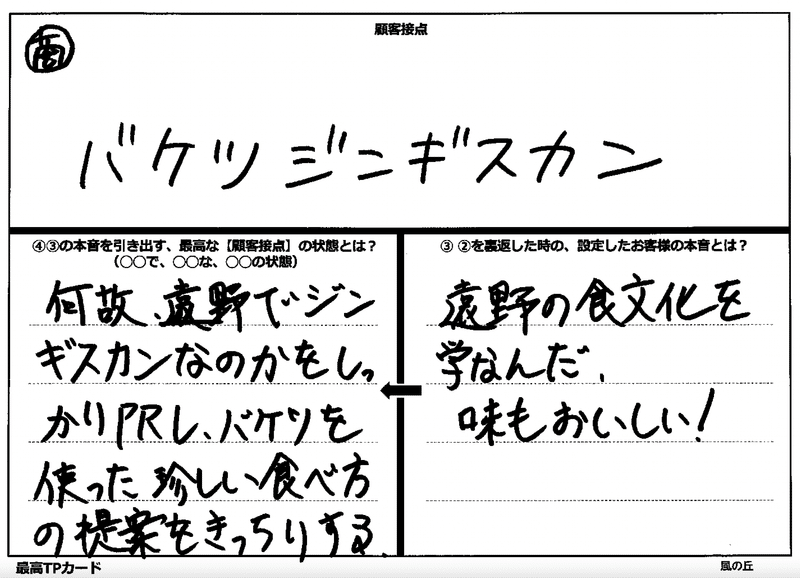 顧客接点
商
バケツジンギスカン
④③の本音を引き出す、最高な【顧客接点】の状態とは？
（〇〇で、〇〇な、〇〇の状態）
何故、遠野でジン
ギスカンなのかをしっ
かりPRし、バケツを
使った珍しい食べ方
の提案をきっちりする。
③ ②を裏返した時の、設定したお客様の本音とは？
遠野の食文化を
学なんだ、
味もおいしい！
最高TPカード
風の丘